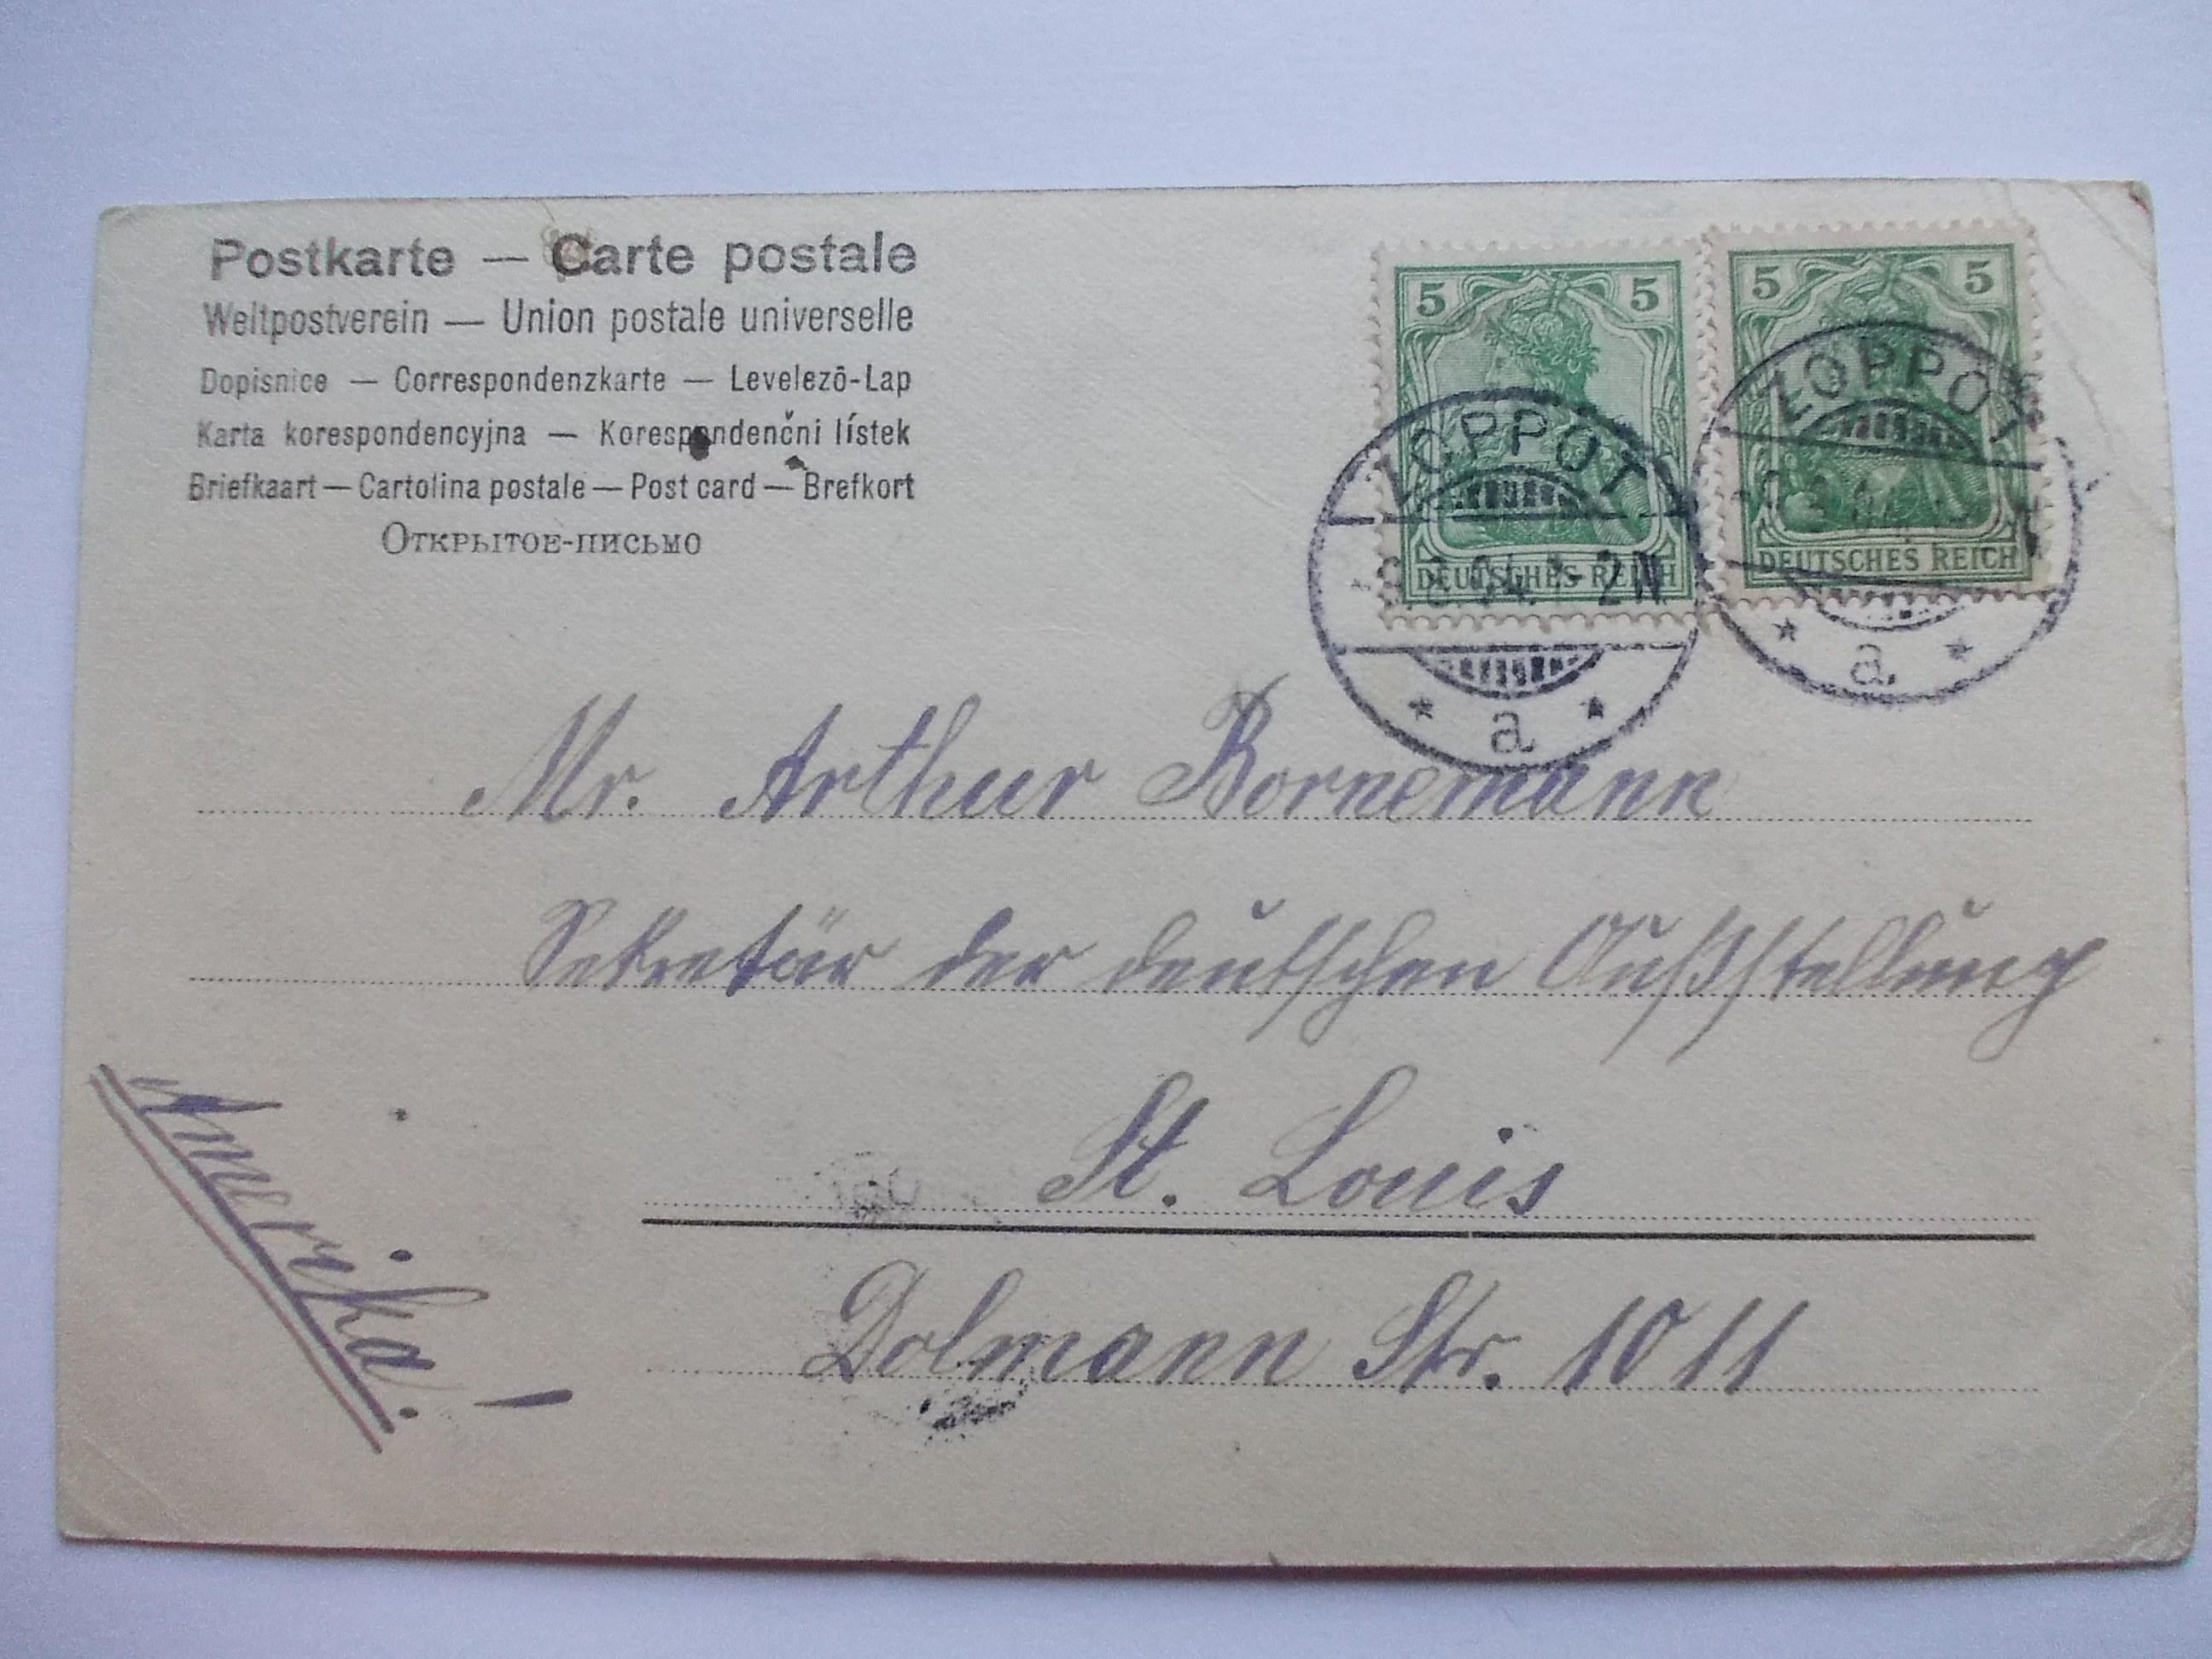 Postkarte — Carte postale
Weltpostverein — Union postale universelle
Dopisnice — Correspondenzkarte — Levelezö-Lap
Karta korespondencyjna — Korespondenčni lístek
Briefkaart — Cartolina postale — Post card — Brefkort
Открытое-письмо
5 5
DEUTSCHES REICH
5 5
DEUTSCHES REICH
ZOPPOT
04. 1-2N
* a *
ZOPPOT
* a. *
Mr. Arthur Bornemann
Sekretär der deutschen Außstellung
St. Louis
Dolmann Str. 1011
Amerika.